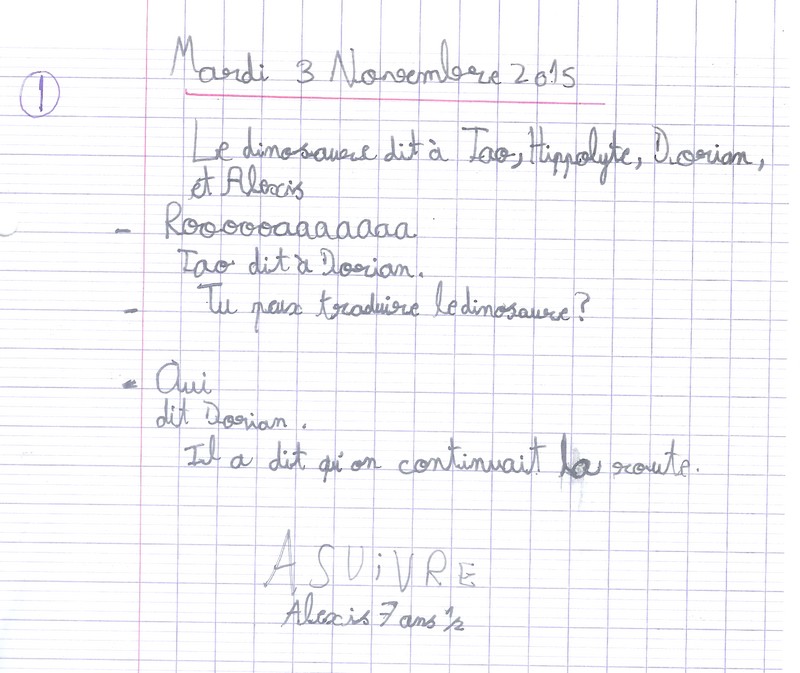 Mardi 3 Novembre 2015
1
Le dinosaure dit à Tao, Hippolyte, Dorian,
et Alexis
- Roooooaaaaaaaa
Tao dit à Dorian.
- Tu peux traduire le dinosaure?
- Oui
dit Dorian.
Il a dit qu'on continuait la route.
A SUiVRE
Alexis 7 ans 1/2